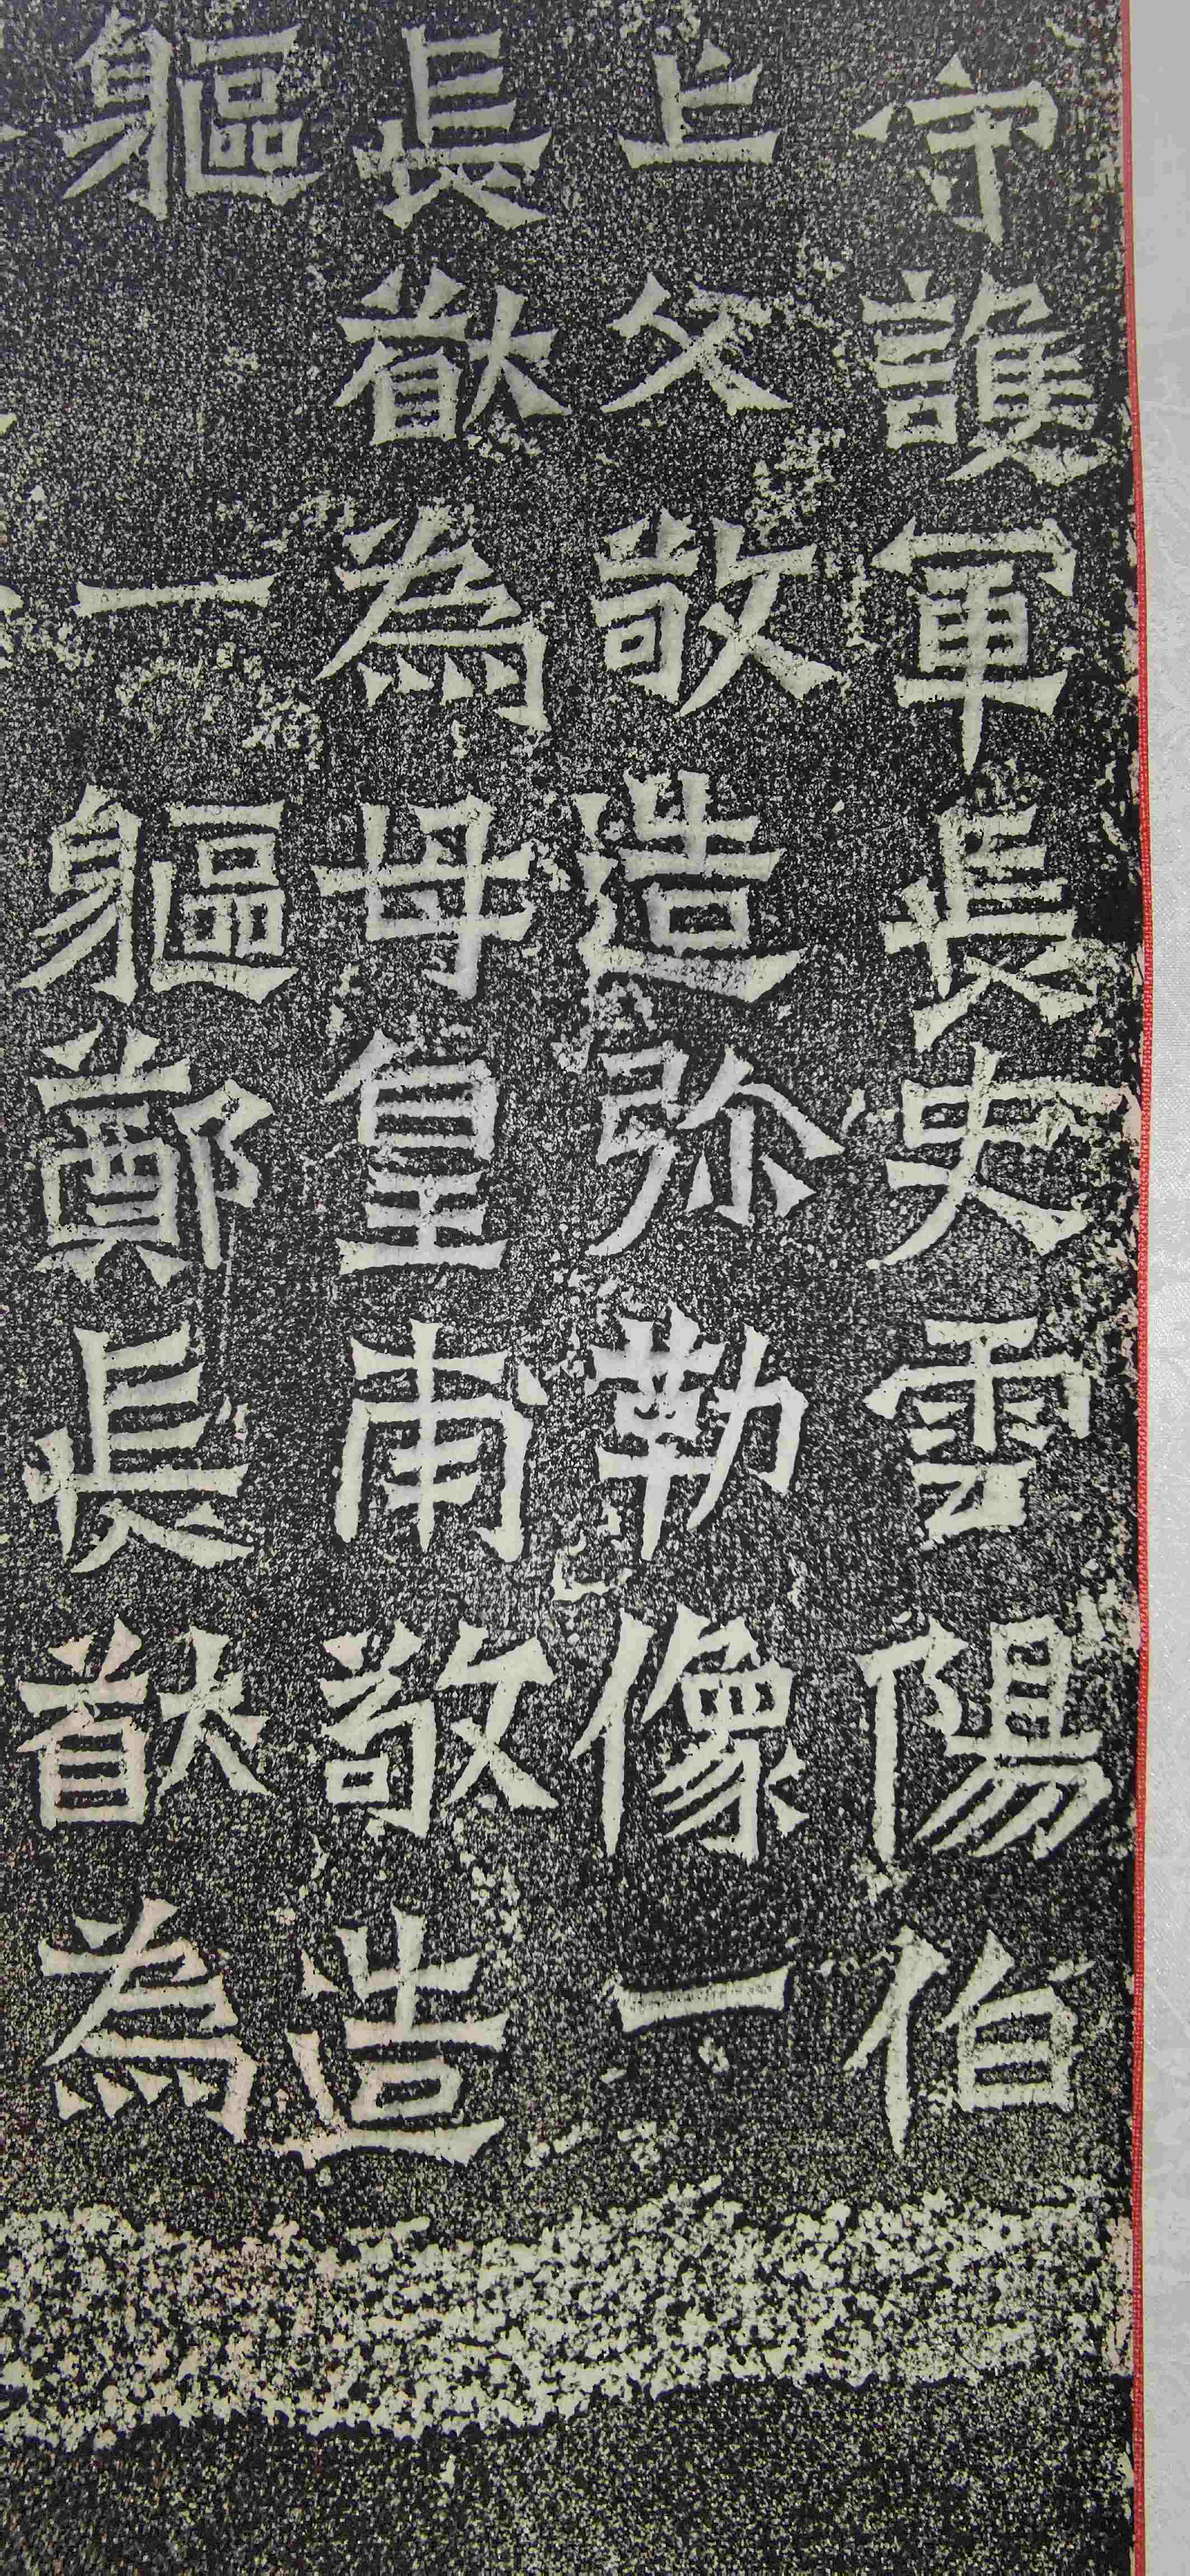 守譙軍長史雲陽伯
上父敬造弥勒像一
長猷為母皇甫敬造
軀一軀鄭長猷為